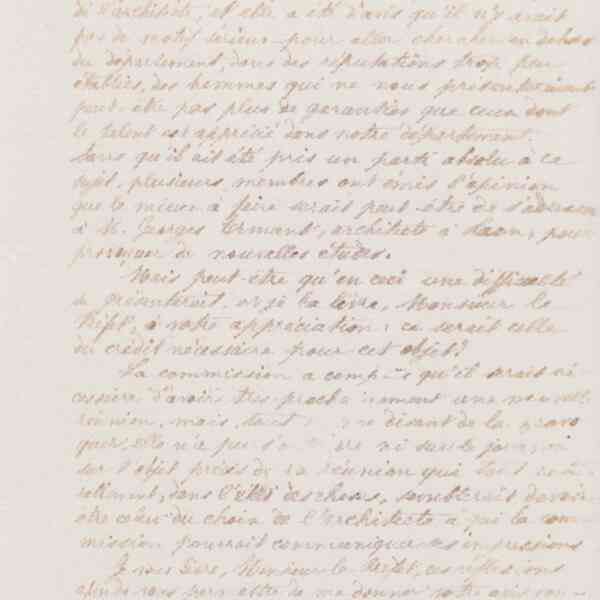 de l'architecte, et elle a été d'avis qu'il n'y avait
pas de motif sérieux pour aller chercher en dehors
du département, dans des réputations trop peu
établies, des hommes qui ne nous présenteraient
peut-être pas plus de garanties que ceux dont
le talent est apprécié dans notre département.
Sans qu'il ait été pris un parti absolu à ce
sujet, plusieurs membres ont émis l'opinion
que le mieux à faire serait peut-être de s'adresser
à M. Georges Ermant, architecte à Laon, pour
provoquer de nouvelles études.
Mais peut-être qu'en ceci une difficulté
se présenterait, et je la livre, Monsieur le
Préfet, à votre appréciation: ce serait celle
du crédit nécessaire pour cet objet?
La commission a compris qu'il serait né-
cessaire d'avoir très prochainement une nouvelle
réunion, mais, tout en me disant de la provo
quer, elle n'a pu ni sur le jour, ni
sur l'objet précis de la réunion qui tout natu-
rellement, dans l'état des choses, semblerait devoir
être celui du choix de l'architecte à qui la com-
mission pourrait communiquer ses impressions
Je vous livre, Monsieur le Préfet, ces réflexions
afin de vous permettre de me donner votre avis